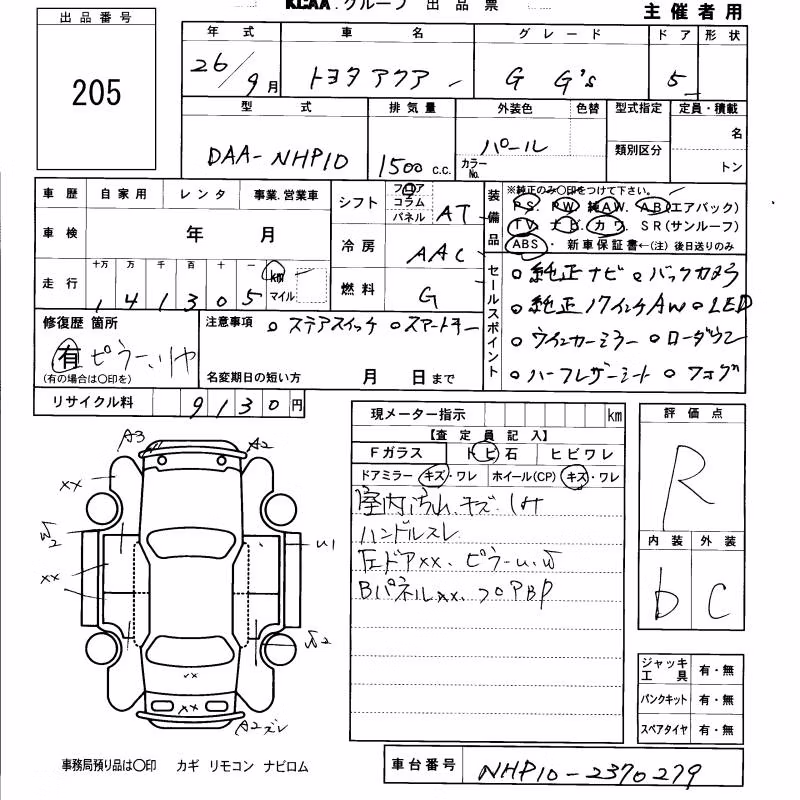 KCAA.グループ 出品票
主催者用
出品番号
205
年式 車名 グレード ドア 形状
26/9月 トヨタ アクア G G's 5
型式 排気量 外装色 色替 型式指定 定員・積載
DAA-NHP10 1500 c.c. パール カラーNo. 類別区分 名 トン
車歴 自家用 レンタ 事業.営業車
車検 年 月
十万 万 千 百 十 一
走行 1 4 1 3 0 5 km マイル
シフト フロア コラム パネル AT
冷房 AAC
燃料 G
装備品 ※純正のみ〇印をつけて下さい。
PS. PW. 純AW. AB(エアバック)
TV. ナビ. カワ. SR(サンルーフ)
ABS・ 新車保証書←(注) 後日送りのみ
セールスポイント
○純正ナビ ○バックカメラ
○純正17インチAW ○LED
○ウインカーミラー ○ローダウン
○ハーフレザーシート ○フォグ
修復歴 箇所
有 ピラー、リヤ
(有の場合は〇印を)
注意事項 ○ステアスイッチ ○スマートキー
名変期日の短い方 月 日まで
リサイクル料 9130円
現メーター指示 km
【査定員記入】
Fガラス トビ石 ヒビワレ
ドアミラー キズ・ワレ ホイール(CP) キズ・ワレ
室内汚れ、キズ、
ハンドルスレ
左ドアXX、ピラーU、W
BパネルXX、フロアBP
評価点
R
内装 外装
b C
A3 A2
XX
W2 U1
XX
W2
XX
XX
A2ズレ
ジャッキ工具 有・無
パンクキット 有・無
スペアタイヤ 有・無
事務局預り品は〇印 カギ リモコン ナビロム
車台番号 NHP10-2370279